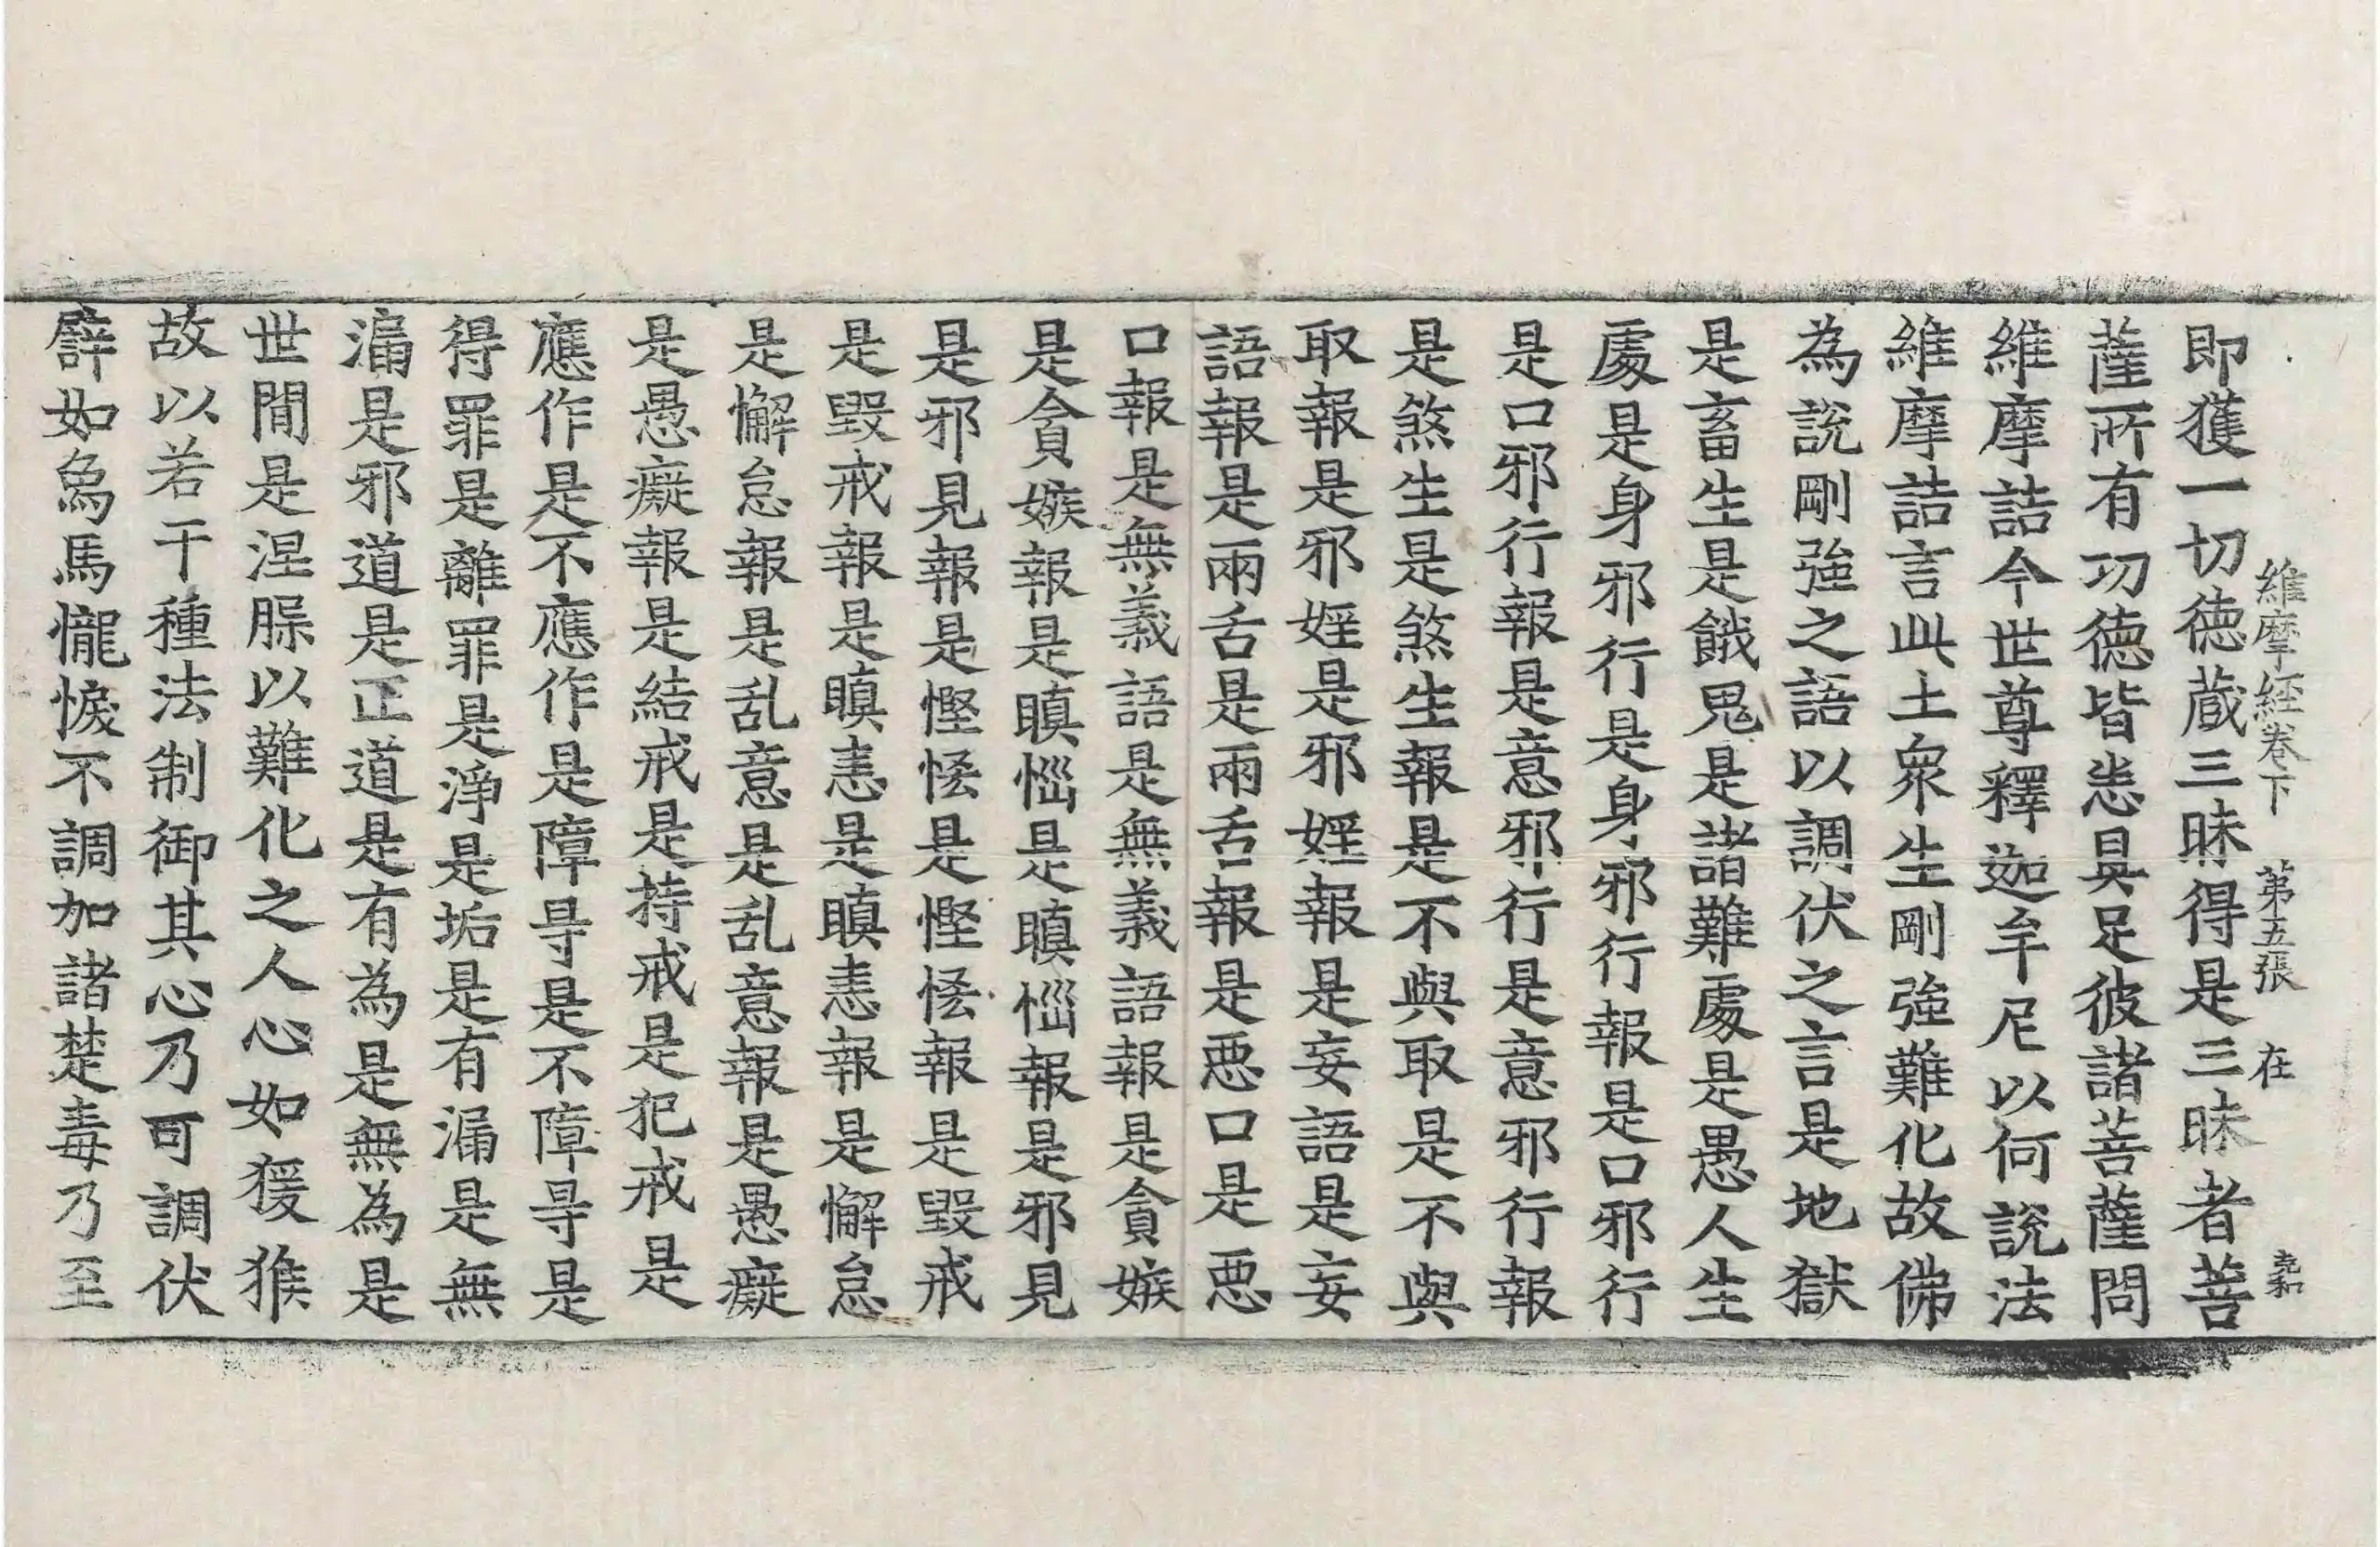 維摩經卷下 第五張 在 尭和
即獲一切徳蔵三昧得是三昧者菩
薩所有功徳皆悉具足彼諸菩薩問
維摩詰今世尊釋迦牟尼以何說法
維摩詰言此土衆生剛強難化故佛
為說剛強之語以調伏之言是地獄
是畜生是餓鬼是諸難處是愚人生
處是身邪行是身邪行報是口邪行
是口邪行報是意邪行是意邪行報
是煞生是煞生報是不與取是不與
取報是邪婬是邪婬報是妄語是妄
語報是兩舌是兩舌報是惡口是惡
口報是無義語是無義語報是貪嫉
是貪嫉報是瞋惱是瞋惱報是邪見
是邪見報是慳悋是慳悋報是毀戒
是毀戒報是瞋恚是瞋恚報是懈怠
是懈怠報是乱意是乱意報是愚癡
是愚癡報是結戒是持戒是犯戒是
應作是不應作是障㝵是不障㝵是
得罪是離罪是淨是垢是有漏是無
漏是邪道是正道是有為是無為是
世間是涅槃以難化之人心如猨猴
故以若干種法制御其心乃可調伏
譬如象馬悷不調加諸楚毒乃至